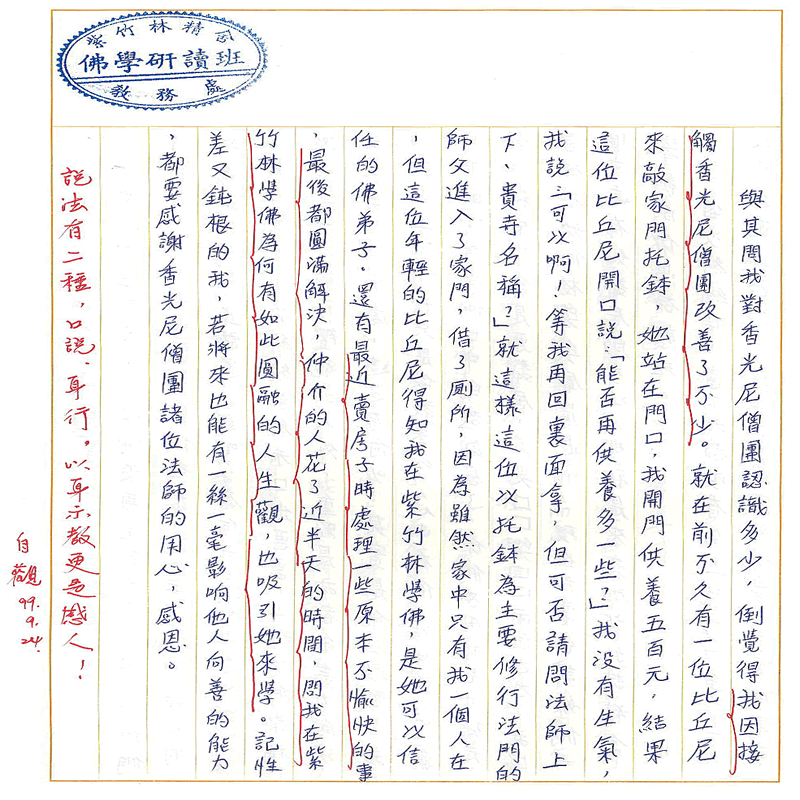 紫竹林精舍
佛學研讀班
教務處
與其問我對香光尼僧團認識多少，倒覺得我因接
觸香光尼僧團改善了不少。就在前不久有一位比丘尼
來敲家門托缽，她站在門口，我開門供養五百元，結果
這位比丘尼開口說：「能否再供養多一些？」我沒有生氣，
我說：「可以啊！等我再回裏面拿，但可否請問法師上
下、貴寺名稱？」就這樣這位以托缽為主要修行法門的
師父進入了家門，借了廁所，因為雖然家中只有我一個人在
，但這位年輕的比丘尼得知我在紫竹林學佛，是她可以信
任的佛弟子。還有最近賣房子時處理一些原本不愉快的事
，最後都圓滿解決，仲介的人花了近半天的時間，問我在紫
竹林學佛為何有如此圓融的人生觀，也吸引她來學。記性
差又鈍根的我，若將來也能有一絲一毫影响他人向善的能力
，都要感謝香光尼僧團諸位法師的用心，感恩。
說法有二種，口說、身行。以身示教更是感人！
自觀
99.
9.
24.